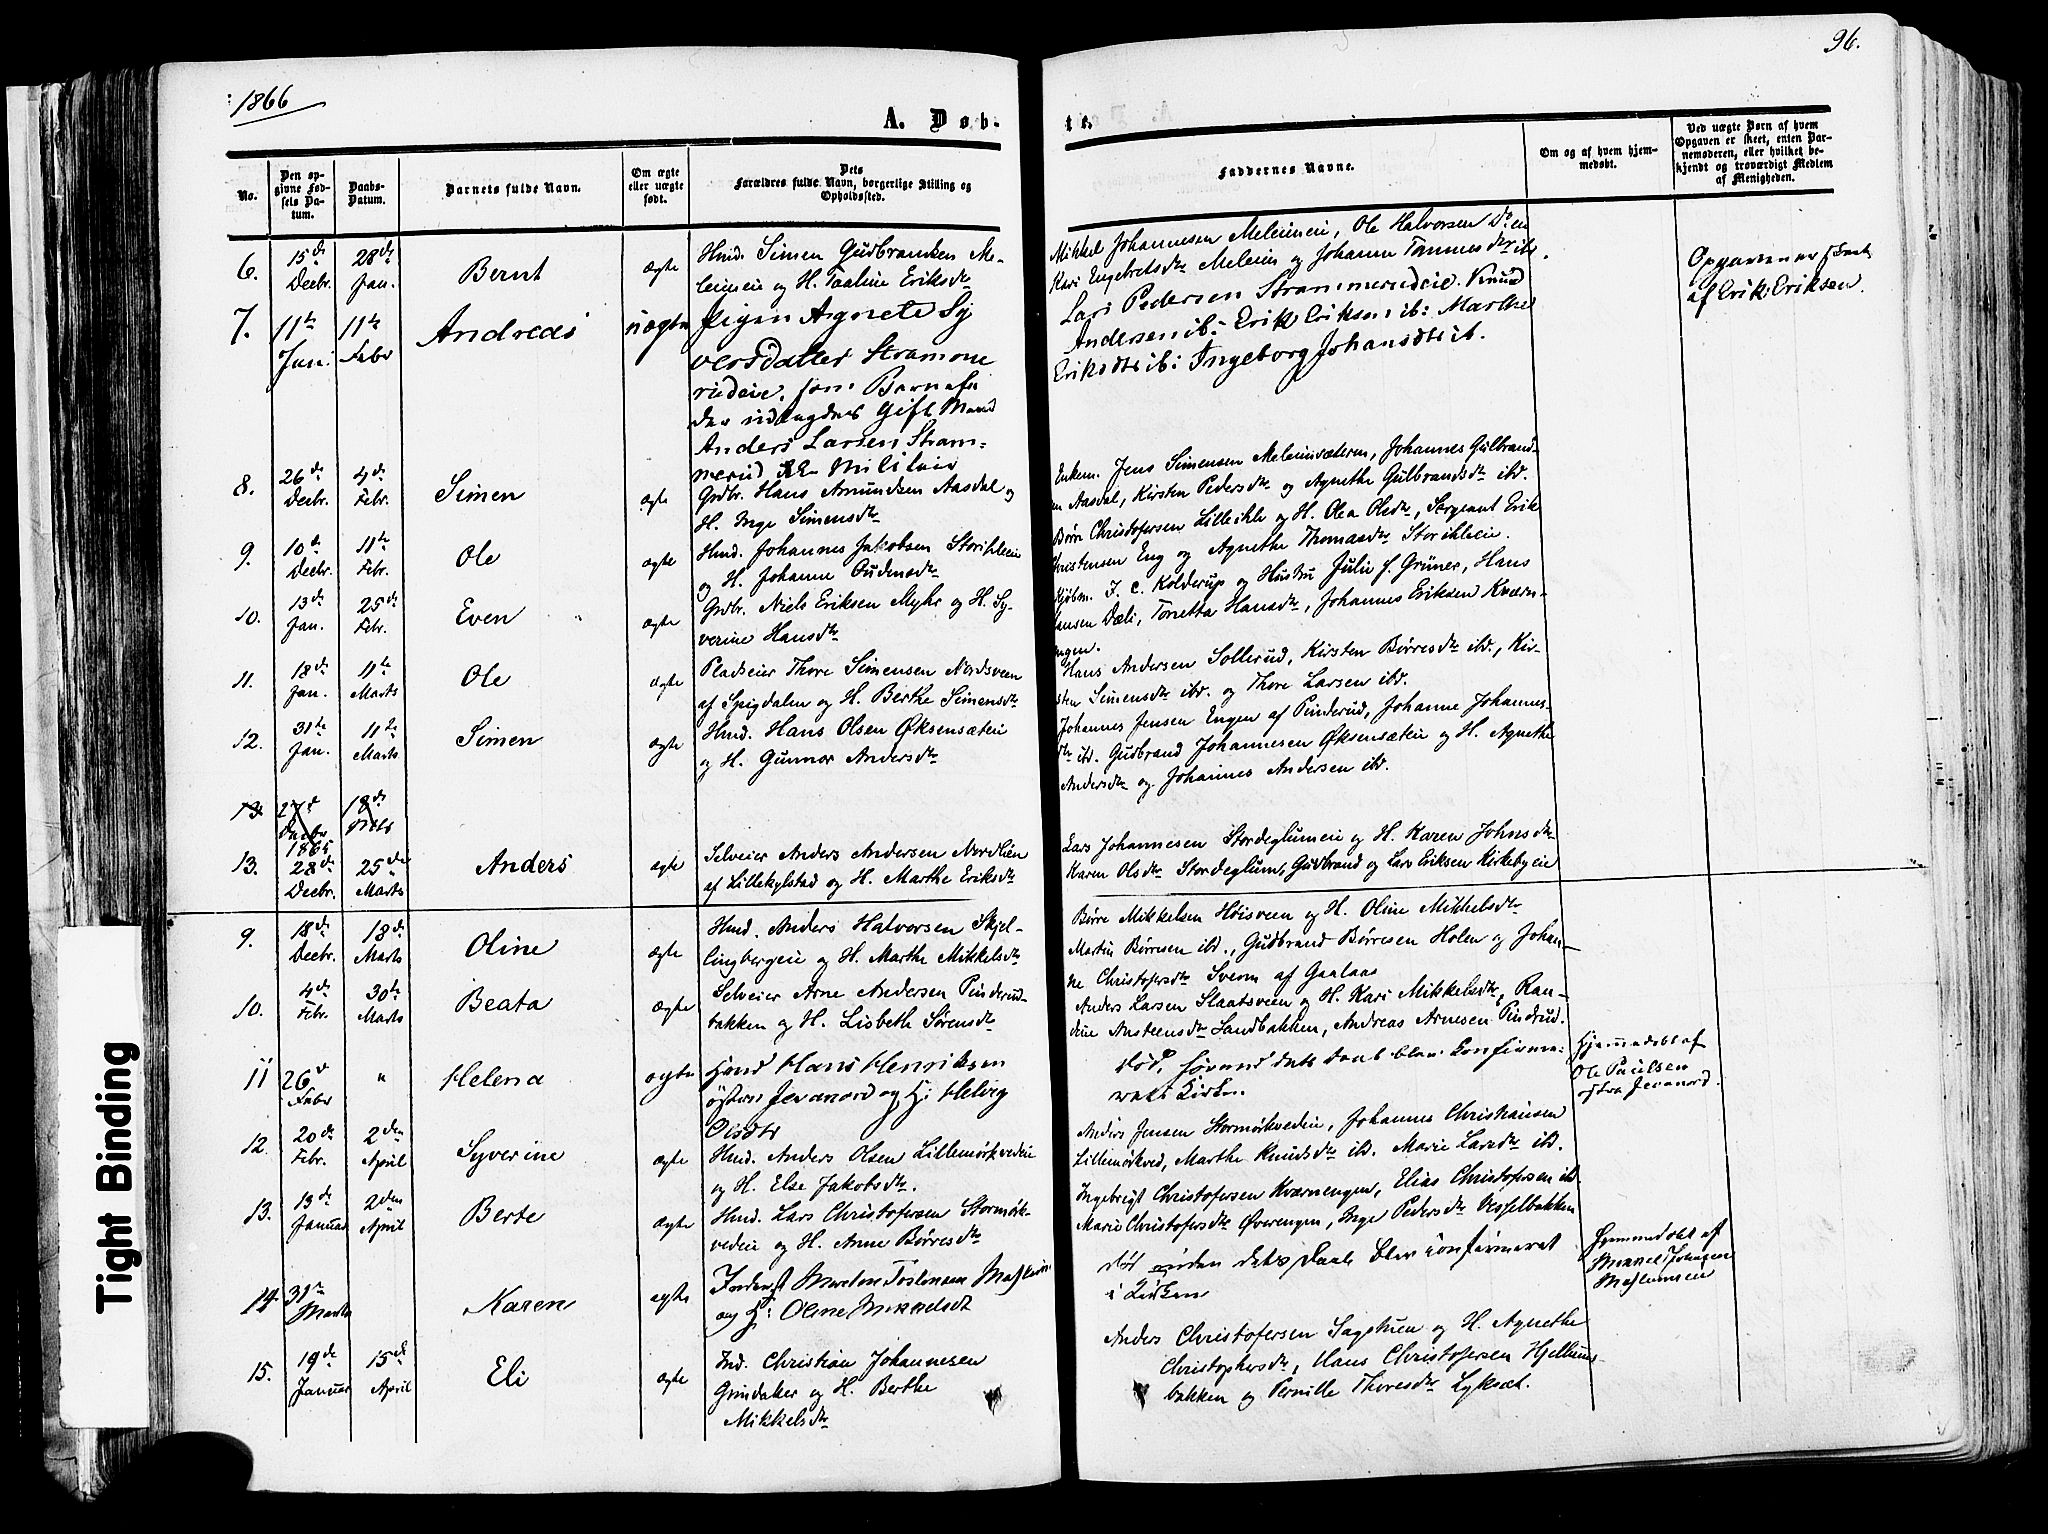 1866
96.
A. Døb-
te.
No.
Den op-
givne Fød-
sels Da-
tum.
Daabs-
Datum.
Barnets fulde Navn.
Om ægte
eller uægte
født.
Dets
Forældres fulde Navn, borgerlige Stilling og
Opholdssted.
Faddernes Navne.
Om og af hvem hjem-
medøbt.
Ved uægte Børn af hvem
Opgaven er skeet, enten Bar-
nemoderen, eller hvilket be-
kjendt og troværdigt Medlem
af Menigheden.
6.
15de
Decbr.
28de
Jan.
Bernt
ægte
Hmd. Simen Gudbrandsen Me-
leimeie og H. Taaline Eriksdtr
Mikkel Johannesen Meleimeie, Ole Halvorsen
Kari Engebretsdtr Meleim og Johanne
7.
11te
Jan.
11te
Febr
Andreas
uægte
Pigen Agnete Sy
versdatter Stramme
rudeie, som Barnefa
der udlægdes Gift Mand
Anders Larsen Stram-
merud Militair
Lars Pedersen Strammerudeie. Knud
Andersen ib: Erik Eriksen ib: Marthe
Eriksdtr ib: Ingeborg Johansdtr ib.
Opgaven er skeet
af Erik Eriksen.
8.
26de
Decbr.
4de
Febr.
Simen
ægte
Grdbr. Hans Amundsen Aasdal og
H. Inge Simensdtr
Enkem. Jens Simensen Meleimsæteren, Johannes Gulbrand-
en Aasdal, Kirsten Pedersdtr og Agnethe Gulbrandsdtr ibd.
9.
10de
Decbr.
11te
Febr.
Ole
ægte
Hmd. Johannes Jakobsen Storihleeie
og H. Johanne Oudensdtr
Børre Christofersen Lilleihle og H. Olea Olsdtr, Sergeant Erik
Christensen Eng og Agnethe Thomasdtr Storihleeie.
10.
13de
Jan.
25de
Febr.
Even
ægte
Grdbr. Niels Eriksen Myhr og H. Sy-
verine Hansdtr
Kjøbm. J. C. Kolderup og Hustru Julie f. Grüner, Hans
Hansen Dæli, Torretta Hansdtr, Johannes Eriksen Kværn-
engen.
11.
18de
Jan.
11te
Marts
Ole
ægte
Pladseier Thore Simensen Nordsveen
af Spigdalen og H. Berthe Simensdtr
Hans Andersen Sollerud, Kirsten Børresdtr ibd., Kir-
sten Simensdtr ibd. og Thore Larsen ibd.
12.
31te
Jan.
11te
Marts
Simen
ægte
Hmd. Hans Olsen Øksensæteie
og H. Gunnor Andersdtr
Johannes Jensen Engen af Pinderud, Johanne Johannes-
dtr ibd. Gudbrand Johannesen Øksensæteie og H. Agnethe
Andersdtr og Johannes Andersen ibd.
13.
27de
Decbr
18de
1865
13.
28de
Decbr.
25de
Marts
Anders
ægte
Selveier Anders Andersen Nordlien
af Lillekylstad og H. Marthe Eriksdtr
Lars Johannesen Stordeglumeie og H. Karen Johnsdtr
Karen Olsdtr Stordeglum, Gudbrand og Lars Eriksen Kirkebyeie
9.
18de
Decbr.
18de
Marts
Oline
ægte
Hmd. Anders Halvorsen Skjel-
lingbergeie og H. Marthe Mikkelsdtr
Børre Mikkelsen Høisveen og H. Oline Mikkelsdtr
Martin Børresen ibd., Gudbrand Børresen Holen og Johan-
ne Christofersdtr Sveen af Gaalaas
10.
4de
Febr.
30te
Marts
Beata
ægte
Selveier Arne Andersen Pinderud-
bakken og H. Lisbeth Sørensdtr
Anders Larsen Slaatsveen og H. Kari Mikkelsdtr, Ran-
dine Austeensdtr Sandbakken, Andreas Arnesen Pindrud.
11
26de
Febr
"
Helena
ægte
Hmd Hans Henriksen
østern Jevanord og H: Helvig
Olsdtr
død, førend dets Daab blev konfirme-
ret i Kirken.
Hjemmedøbt af
Ole Paulsen
østre Jevanord.
12.
20de
Febr.
2den
April
Syverine
ægte
Hmd. Anders Olsen Lillemørkvedeie
og H. Else Jakobsdtr.
Anders Jensen Stormørkvedeie, Johannes Christiansen
Lillemørkved, Marthe Knudsdtr ibd. Marie Larsdtr ibd.
13.
13de
Januar
2den
April
Berte
ægte
Hmd. Lars Christofersen Stormørk-
vedeie og H. Anne Børresdtr
Ingebrigt Christofersen Kværnengen, Elias Christofersen ibd.
Marie Christofersdtr Øverengen, Inge Pedersdtr Vesselbakken
14
31te
Marts
Karen
ægte
Inderst Morten
og H: Oline Mikkelsdt
død inden dets Daab blev konfirmeret
i Kirken
Hjemmedøbt af
Mikkel Johansen
15.
19de
Januar
15de
April
Eli
ægte
Ind. Christian Johannesen
Grindaker og H. Berthe
Mikkelsdtr
Anders Christofersen Sagstuen og H. Agnethe
Christophersdtr, Hans Christofersen Hjellums-
bakken og Pernille Thoresdtr Lyksæt.
Tight Binding